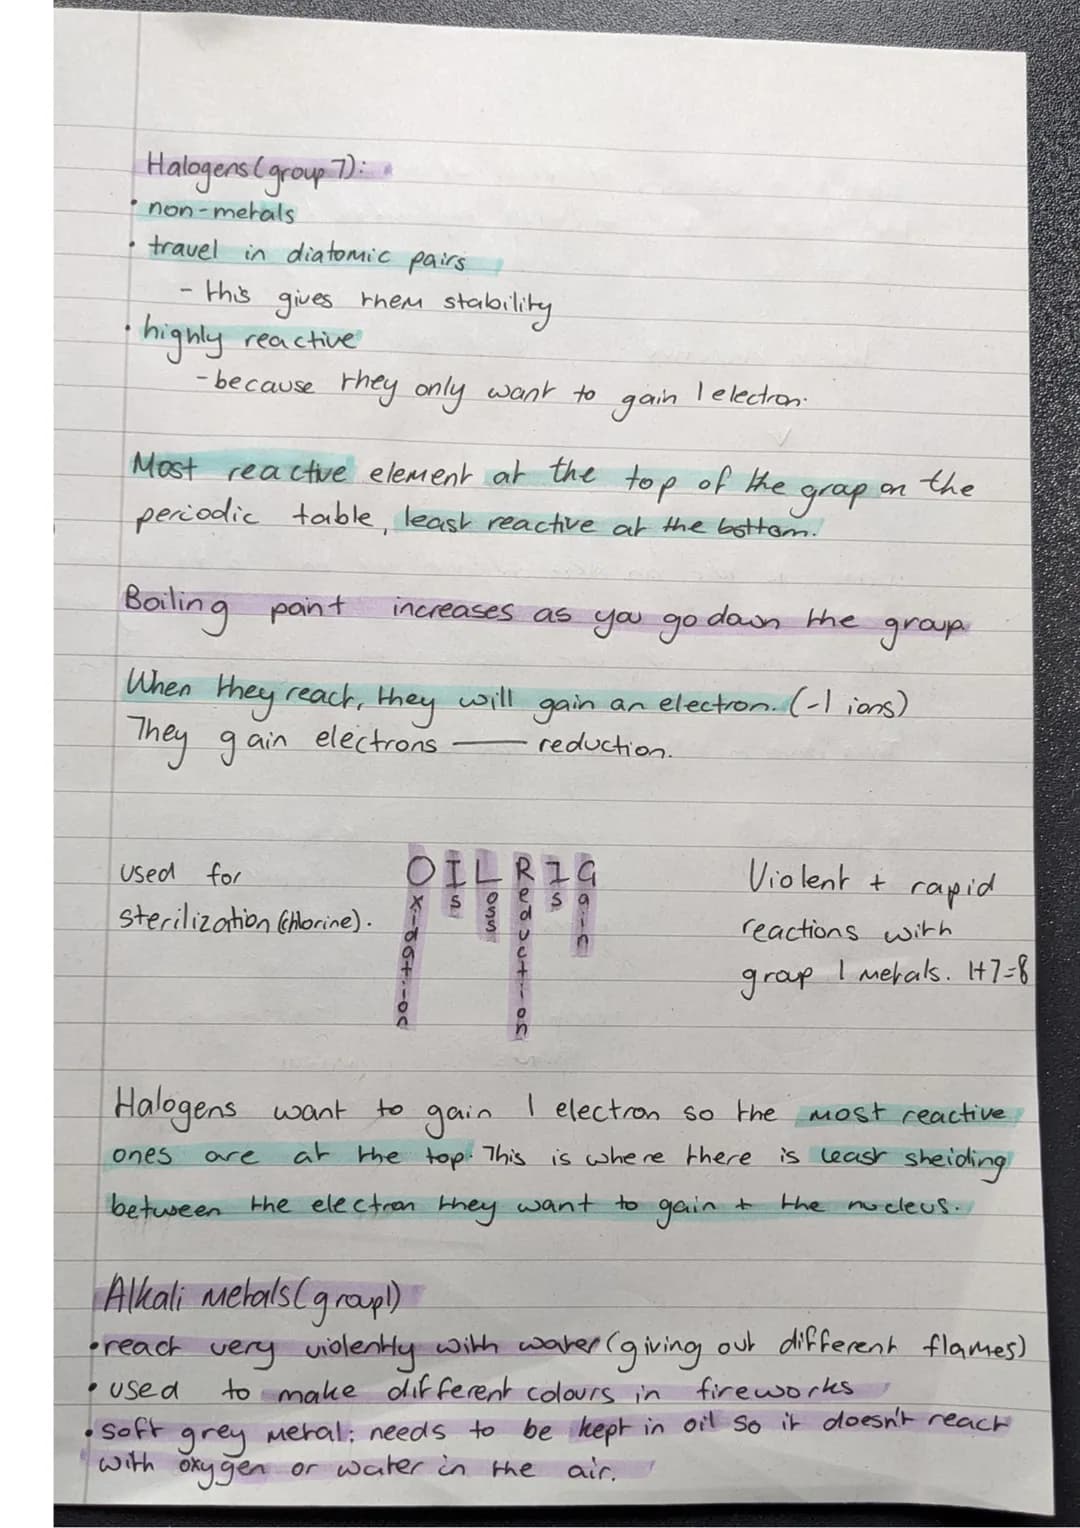 Halogens (group 7):
• non-metals
• travel in diatomic pairs
- this gives them stability
• highly reactive
- because they only want to gain 1 electron.
Most reactive element at the top of the group on the
periodic table, least reactive at the bottom.
Boiling point increases as you go down the group
When they react, they will gain an electron. (-1 ions)
They gain electrons — reduction.
used for
sterilization (chlorine).
OILRIG
Oxidation
Is
Loss
Reduction
Is
Gain
Violent + rapid
reactions with
group 1 metals. 1+7=8
Halogens want to gain 1 electron so the most reactive
ones are at the top. This is where there is least sheiding
between the electron they want to gain + the nucleus.
Alkali metals (group1)
• react very violently with water (giving out different flames)
• used to make different colours in fireworks
• soft grey metal: needs to be kept in oil so it doesn't react
with oxygen or water in the air.